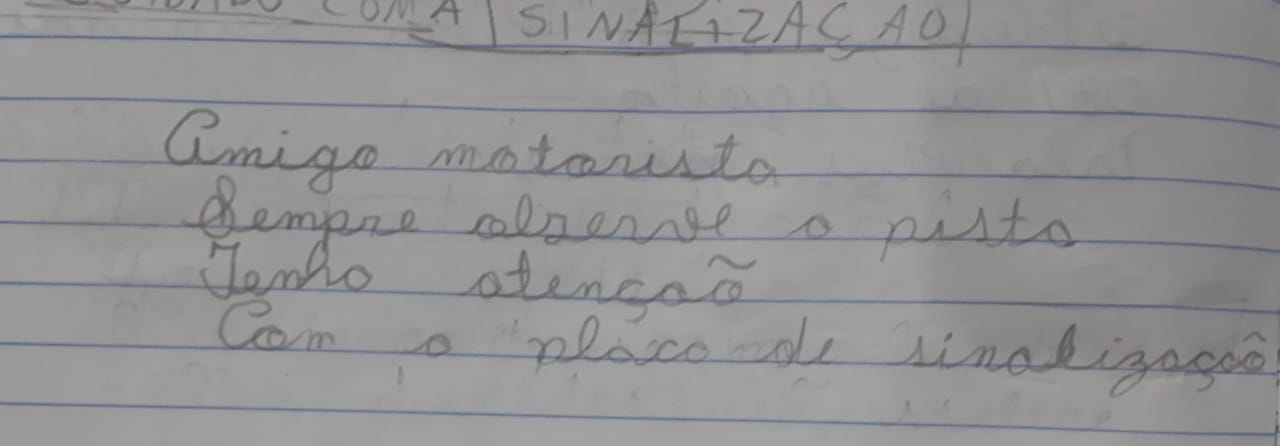 COM A SINALIZAÇAO
Amigo motorista
Sempre observe a pista
Tenha atençaõ
Com a placa de sinalizaçaô